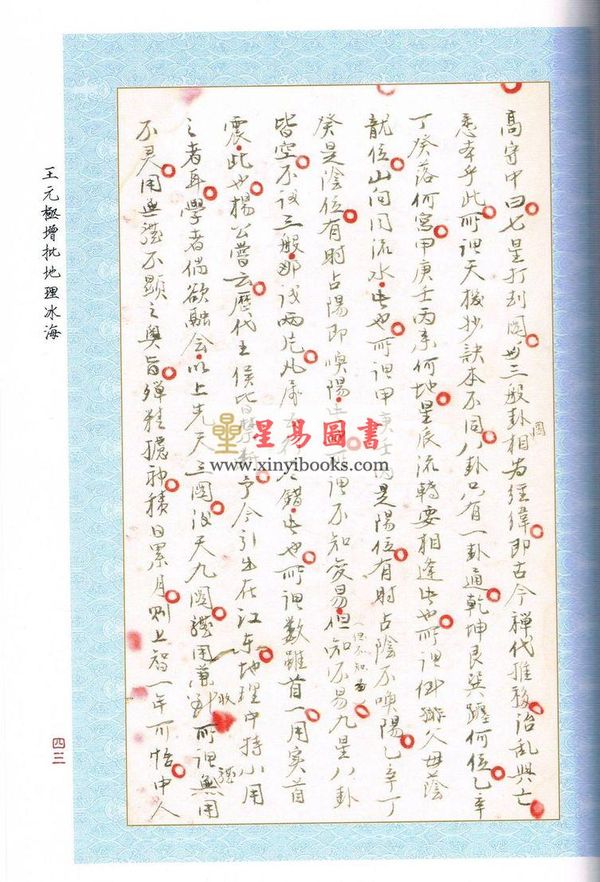 高守中曰七星打到圖卋三般卦相為經緯即古今禪代推移治亂興亡
圖
悉本乎此所謂天機抄訣本不同八卦只有一卦通乾坤艮巽躔何位乙辛
丁癸落何宮甲庚壬丙來何地星辰流轉要相逢此也所謂倒排父母蔭
龍位山向同流水此也所謂甲庚壬丙是陽位有時占陰不喚陽乙辛丁
癸是陰位有時占陽即喚陽 所謂不知變易但知不易九星八卦
但不知為
皆空不以三般那以兩片凡屬五行盡錯此也所謂數雖首一用實首
震此也楊公嘗云歷代王侯皆 今引出在江东地理中特小用
之者耳學者倘欲融会以上先天三圖后天九圖 用 所謂無用
不灵用無 不顯之奧旨殫精 神積日累月則上智一年可悟中人
王元極增批地理冰海
四三
星易圖書
www.xinyibooks.com